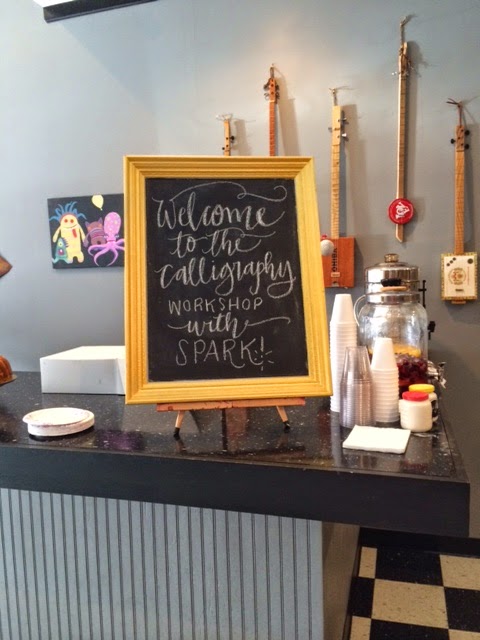 Welcome
to the
Calligraphy
WORKSHOP
with
SPARK!